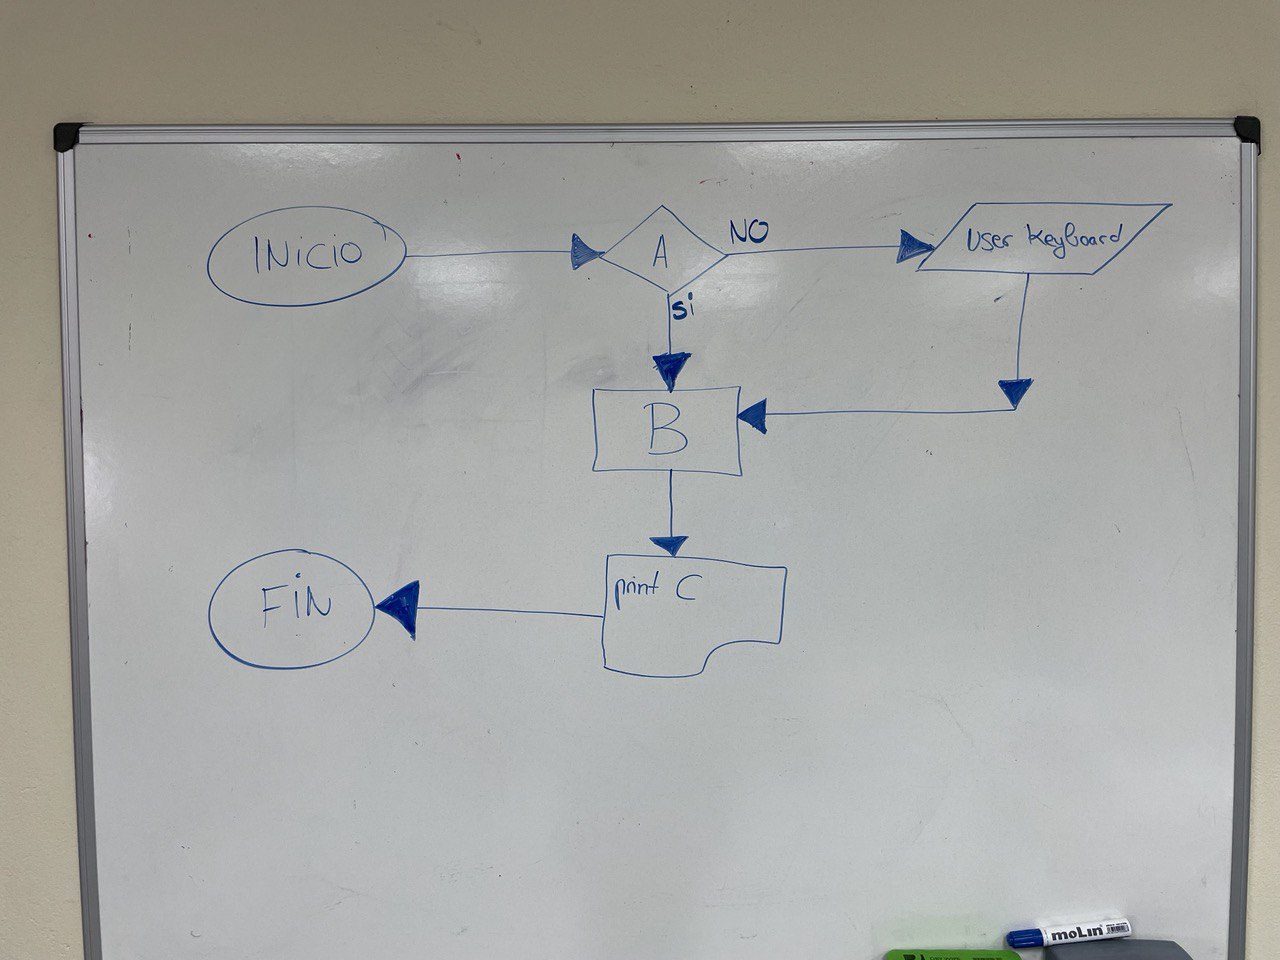 INiCiO
A
NO
User Keyboard
si
B
print C
FiN
moLin